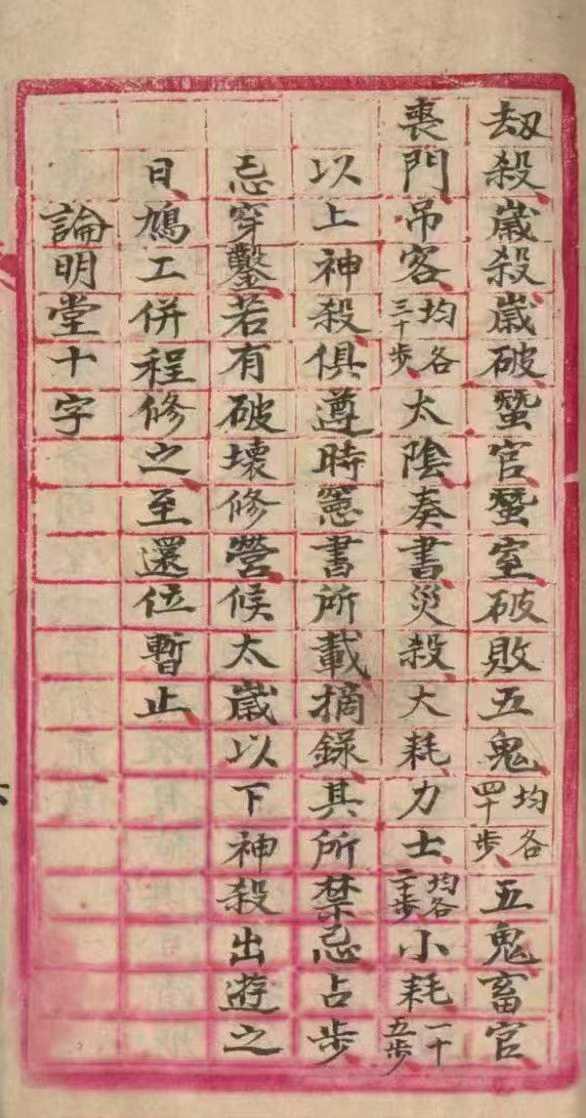 劫殺歲殺歲破蠶官蠶室破敗五鬼均各四十步五鬼畜官
喪門吊客均各三十步太陰奏書災殺大耗力士均各二十步小耗一十五步
以上神殺俱遵時憲書所載摘錄其所禁忌占步
忌穿鑿若有破壞修營候太歲以下神殺出遊之
日鳩工併程修之至還位暫止
論明堂十字